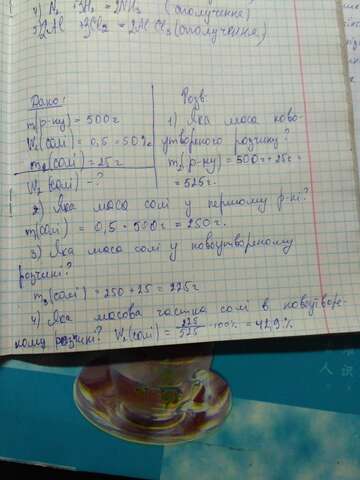 4) N₂ + 3H₂ = 2NH₃ (сполучення)
2Al + 3Cl₂ = 2AlCl₃ (сполучення)
Дано:
m₁(р-ну) = 500г
W₁(солі) = 0,5 = 50%
m₂(солі) = 25г
W₂(солі) - ?
Розв.
1) Яка маса ново-
утвореного розчину?
m₂(р-ну) = 500г + 25г =
= 525г.
2) Яка маса солі у першому р-ні?
m₁(солі) = 0,5 · 500г = 250г.
3) Яка маса солі у новоутвореному
розчині?
m₃(солі) = 250 + 25 = 225г
4) Яка масова частка солі в новоутворе-
ному розчині? W₂(солі) = 225/525 · 100% = 42,9%